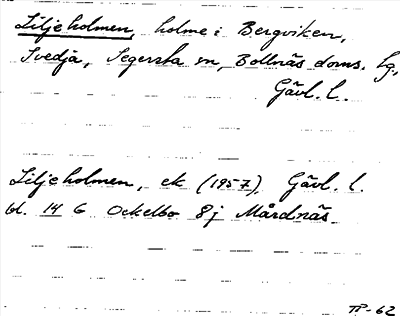 Liljeholmen, holme i Bergviken,
Svedja, Segersta sn, Bollnäs doms. hg,
Gävl. l.
Liljeholmen, ek (1957), Gävl. l.
bl. 14 G Ockelbo 8j Mårdnäs.
TP-62